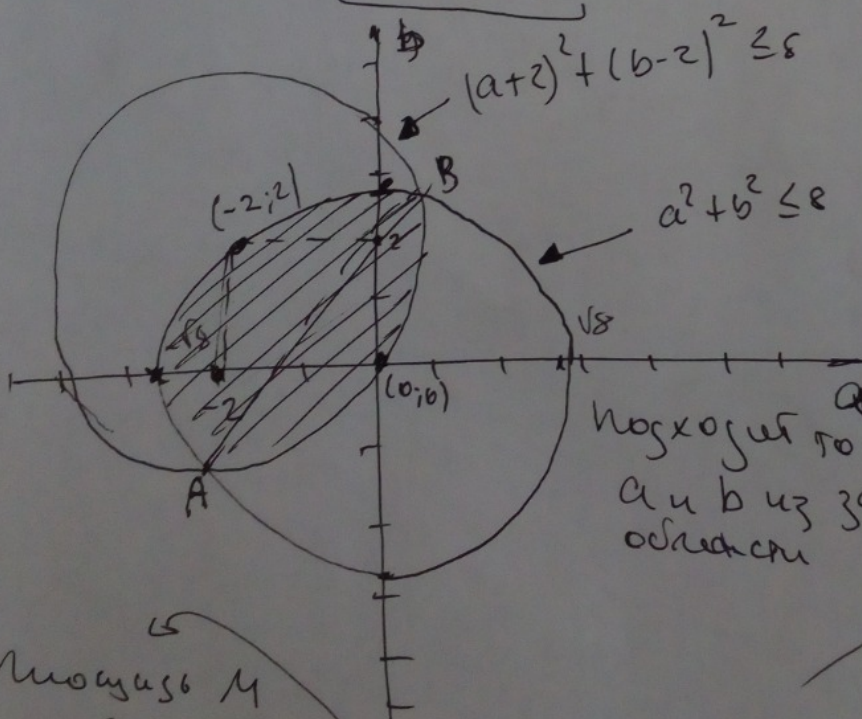 b
(a+2)²+(b-2)² ≤ 8
B
(-2;2)
a²+b² ≤ 8
2
-√8
√8
-2
(0;0)
a
A
Подходит то
a и b из
области
Площадь M